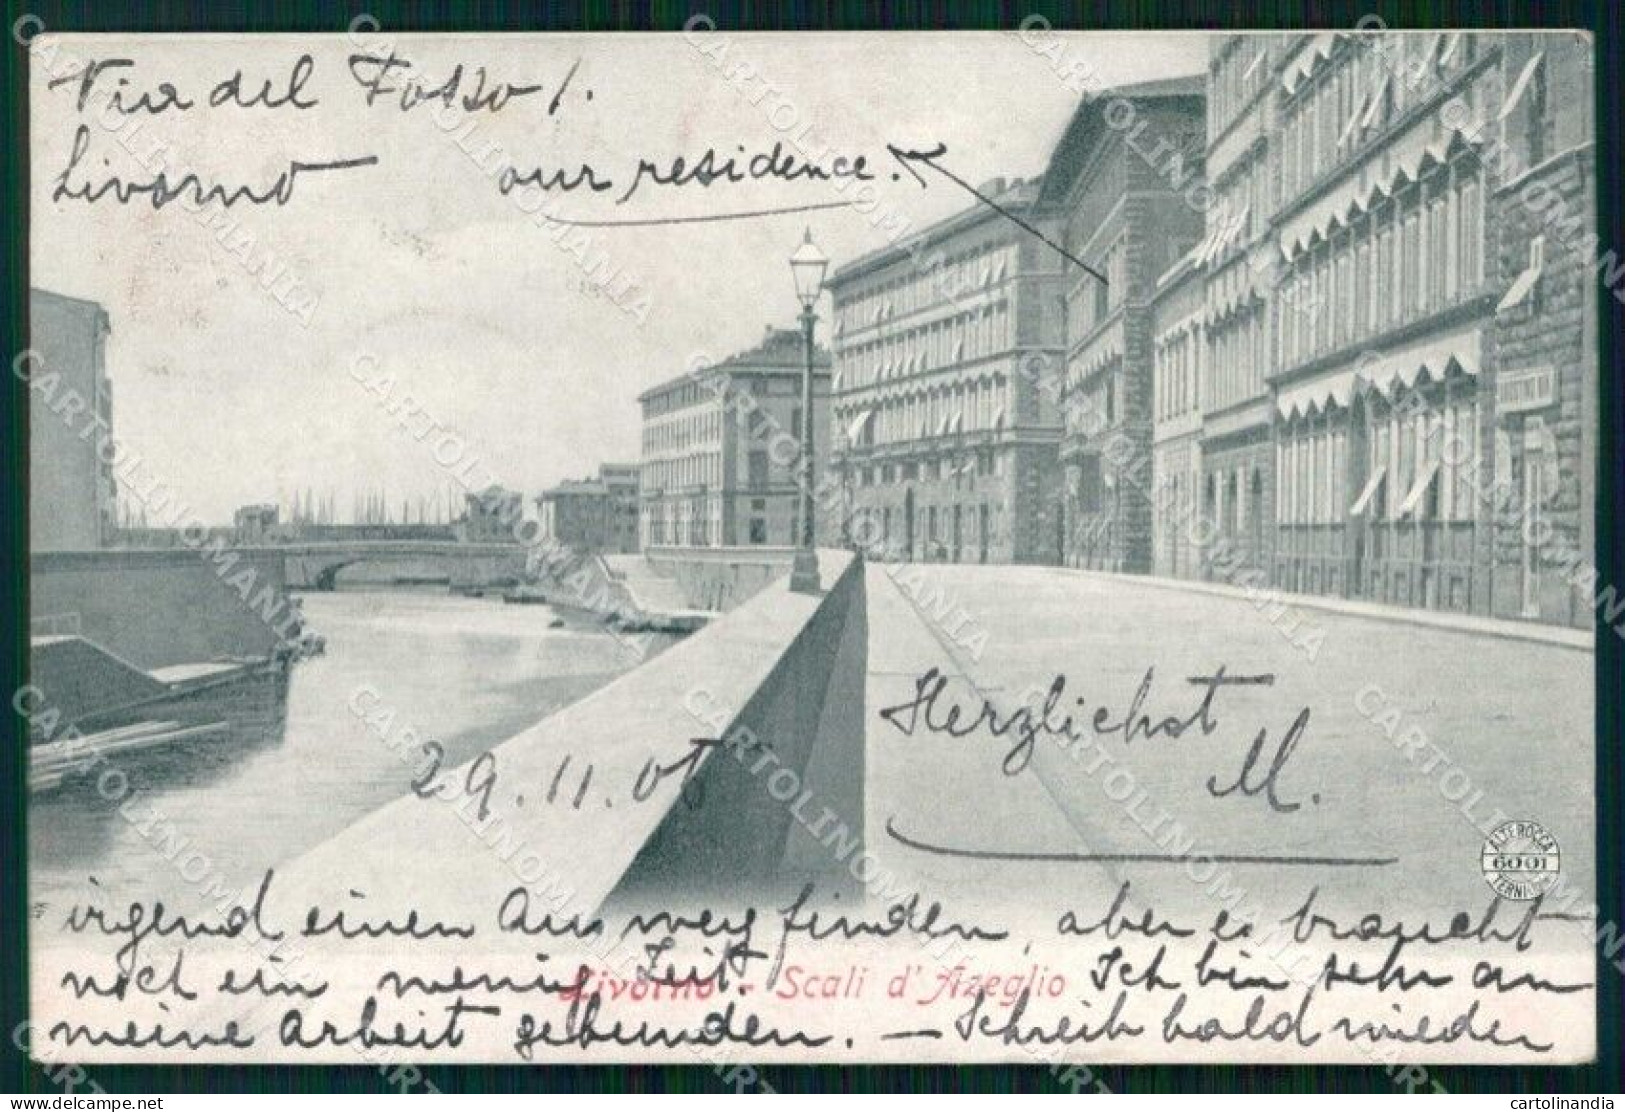 Via del Fosso 1.
Livorno our residence.
Herzlichst
M.
29.11.05
ALTEROCCA
6001
TERNI
irgend einen Ausweg finden, aber es braucht
noch ein wenig Zeit. Ich bin sehr an
Livorno - Scali d'Azeglio
meine Arbeit gebunden. — Schreib bald wieder
CARTOLINOMANIA
cartolinandia